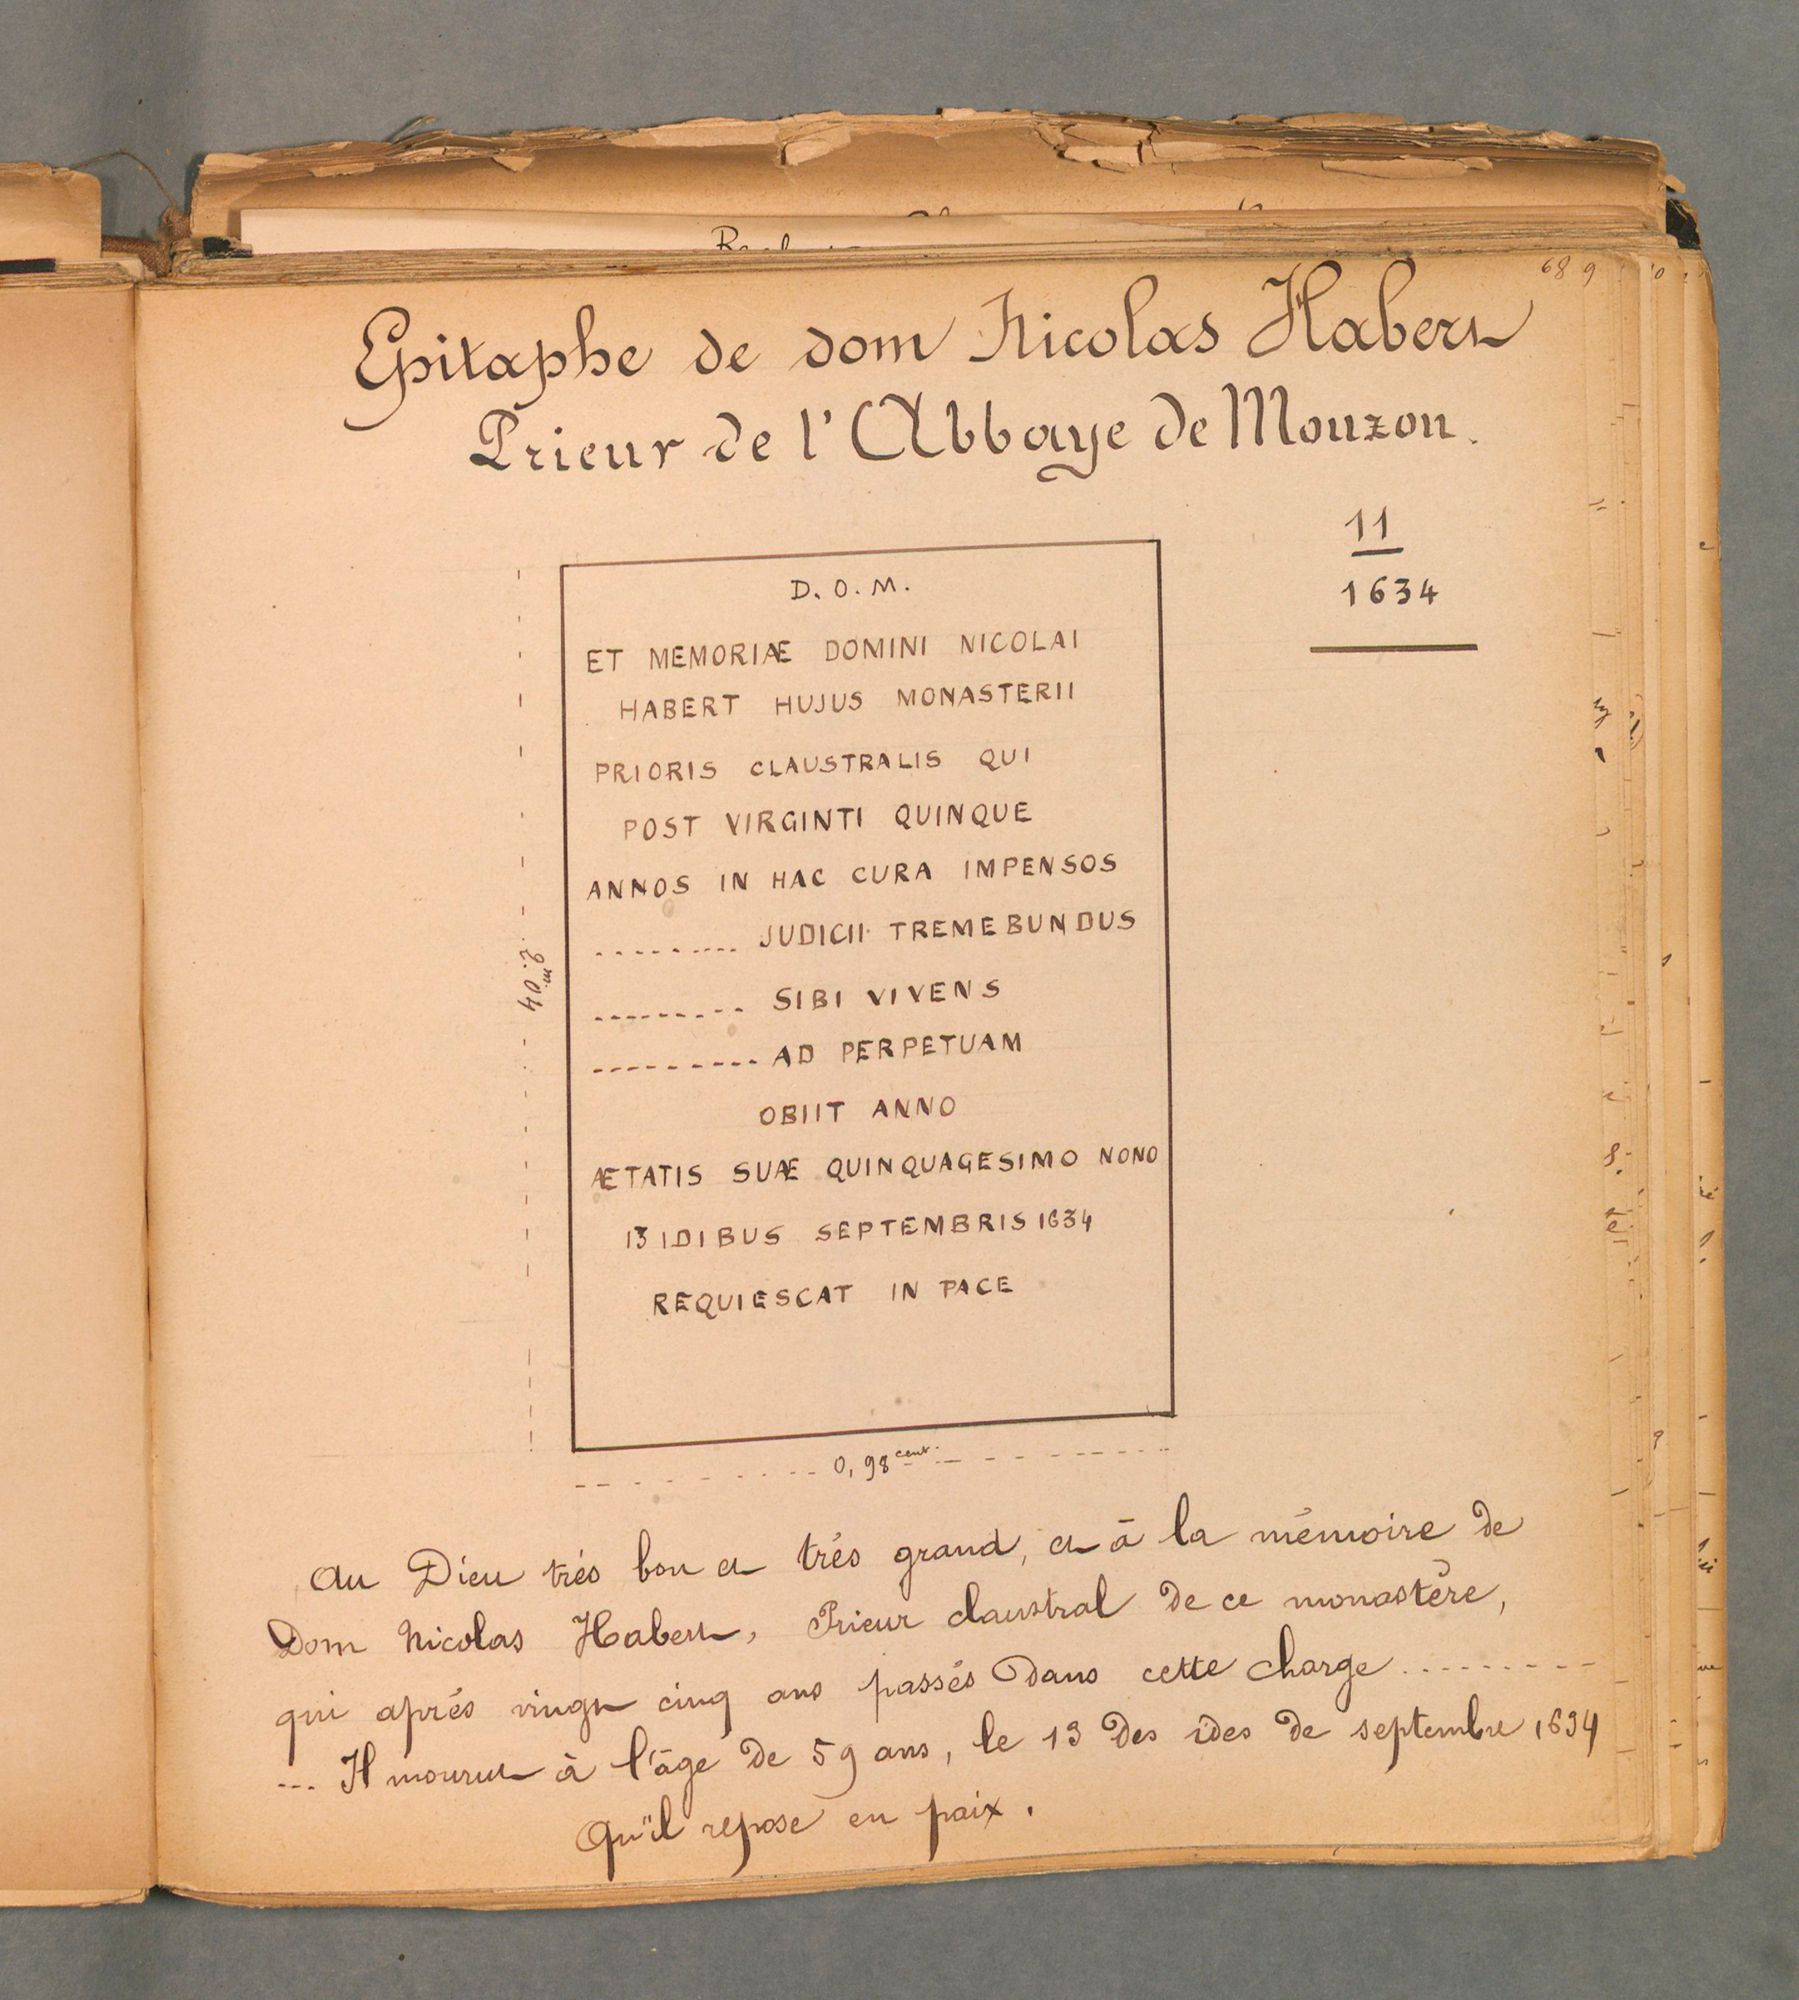 68
Epitaphe de dom Nicolas Habert
Prieur de l'Abbaye de Mouzon.
11
1634
D. O. M.
ET MEMORIÆ DOMINI NICOLAI
HABERT HUJUS MONASTERII
PRIORIS CLAUSTRALIS QUI
POST VIRGINTI QUINQUE
ANNOS IN HAC CURA IMPENSOS
......... JUDICII TREMEBUNDUS
......... SIBI VIVENS
.......... AD PERPETUAM
OBIIT ANNO
ÆTATIS SUÆ QUINQUAGESIMO NONO
13 IDIBUS SEPTEMBRIS 1634
REQUIESCAT IN PACE
0,98 cent.
Au Dieu trés bon et trés grand, et à la mémoire de
Dom Nicolas Habert, Prieur claustral de ce monastère,
qui aprés vingt cinq ans passés dans cette charge .........
... Il mourut à l'âge de 59 ans, le 13 des ides de septembre 1634
Qu'il repose en paix.